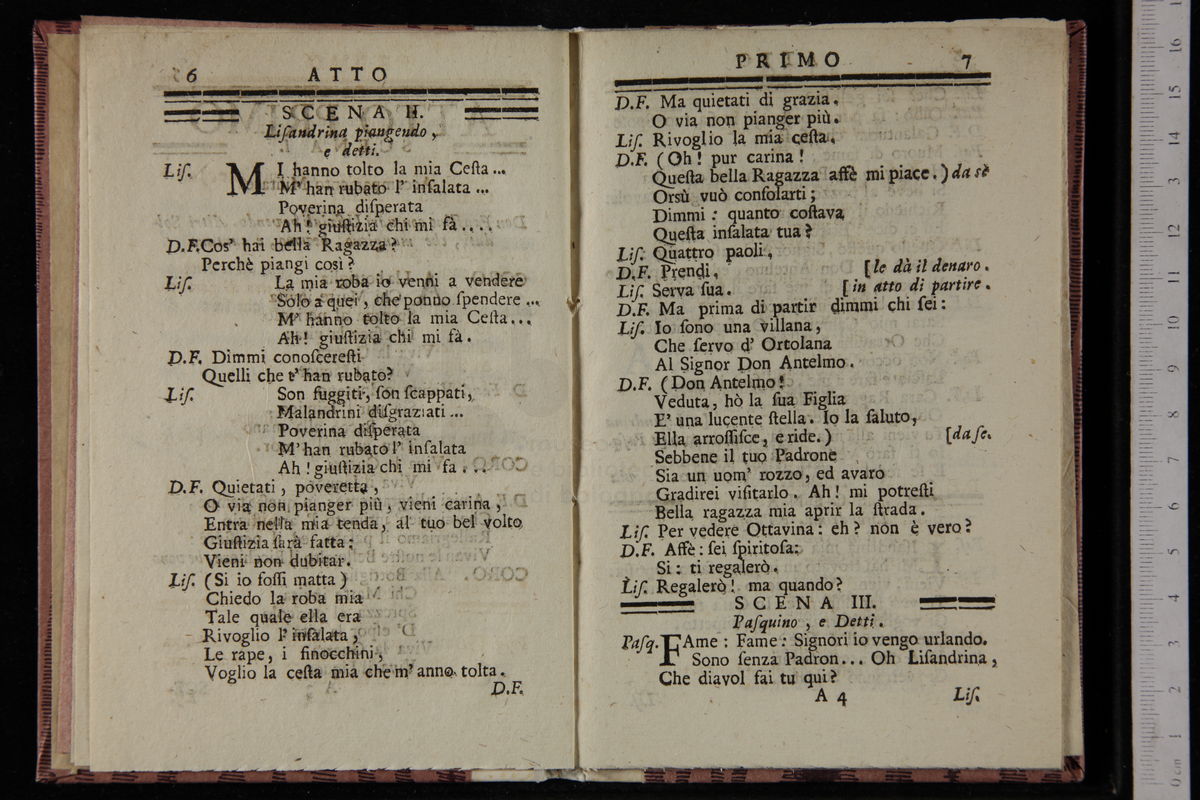 6 ATTO
SCENA II.
Liſandrina piangendo,
e detti.
Liſ. MI hanno tolto la mia Ceſta...
M' han rubato l' inſalata ...
Poverina diſperata
Ah! giuſtizia chi mi fà....
D.F. Cos' hai bella Ragazza?
Perchè piangi così?
Liſ. La mia roba io venni a vendere
Solo a quei, che ponno ſpendere ...
M' hanno tolto la mia Ceſta...
Ah! giuſtizia chi mi fà.
D.F. Dimmi conoſcereſti
Quelli che t' han rubato?
Liſ. Son fuggiti, ſon ſcappati,
Malandrini diſgraziati ...
Poverina diſperata
M' han rubato l' inſalata
Ah! giuſtizia chi mi fa...
D.F. Quietati, poveretta,
O via non pianger più, vieni carina,
Entra nella mia tenda, al tuo bel volto
Giuſtizia ſarà fatta:
Vieni non dubitar.
Liſ. (Si io foſſi matta)
Chiedo la roba mia
Tale quale ella era
Rivoglio l' inſalata,
Le rape, i finocchini,
Voglio la ceſta mia che m' anno tolta.
D.F.
PRIMO 7
D.F. Ma quietati di grazia.
O via non pianger più.
Liſ. Rivoglio la mia ceſta.
D.F. (Oh! pur carina!
Queſta bella Ragazza affè mi piace.) da sè
Orsù vuò conſolarti;
Dimmi: quanto coſtava
Queſta inſalata tua?
Liſ. Quattro paoli.
D.F. Prendi. [le dà il denaro.
Liſ. Serva ſua. [in atto di partire.
D.F. Ma prima di partir dimmi chi ſei:
Liſ. Io ſono una villana,
Che ſervo d' Ortolana
Al Signor Don Antelmo.
D.F. (Don Antelmo!
Veduta, hò la ſua Figlia
E' una lucente ſtella. Io la ſaluto,
Ella arroſſiſce, e ride.) [da ſe.
Sebbene il tuo Padrone
Sia un uom' rozzo, ed avaro
Gradirei viſitarlo. Ah! mi potreſti
Bella ragazza mia aprir la ſtrada.
Liſ. Per vedere Ottavina: eh? non è vero?
D.F. Affè: ſei ſpiritoſa:
Si: ti regalerò.
Liſ. Regalerò! ma quando?
SCENA III.
Paſquino, e Detti.
Paſq. FAme: Fame: Signori io vengo urlando.
Sono ſenza Padron... Oh Liſandrina,
Che diavol fai tu qui?
A 4 Liſ.